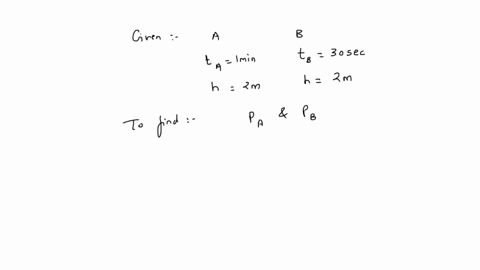 Given :- A B
t_A = 1min t_B = 30sec
h = 2m h = 2m
To find :- P_A & P_B